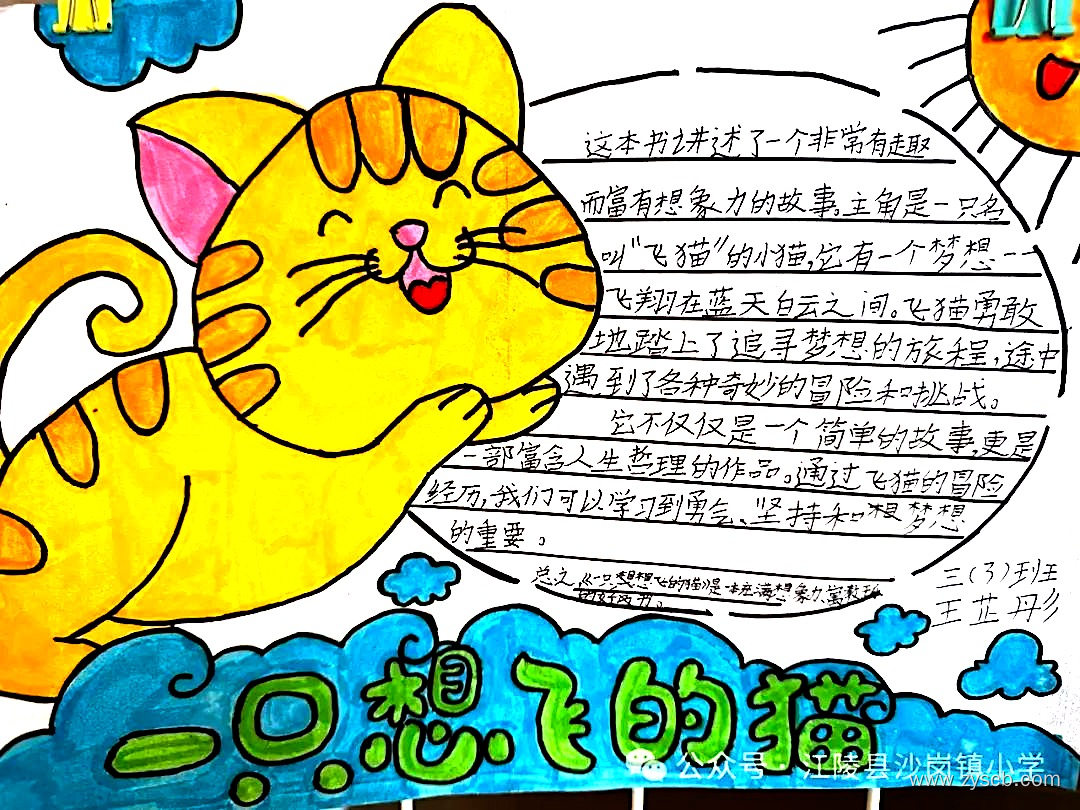 这本书讲述了一个非常有趣
而富有想象力的故事。主角是一只名
叫“飞猫”的小猫,它有一个梦想--
飞翔在蓝天白云之间。飞猫勇敢
地踏上了追寻梦想的旅程,途中
遇到了各种奇妙的冒险和挑战。
它不仅仅是一个简单的故事,更是
一部富含人生哲理的作品。通过飞猫的冒险
经历,我们可以学习到勇气、坚持和想梦想
的重要。
总之,《一只想想飞的猫》是一本充满想象力、富教
的好书。
三(3)班
王芷彤
一只想飞的猫
公众号·江陵县沙岗镇小学
www.zyscb.com